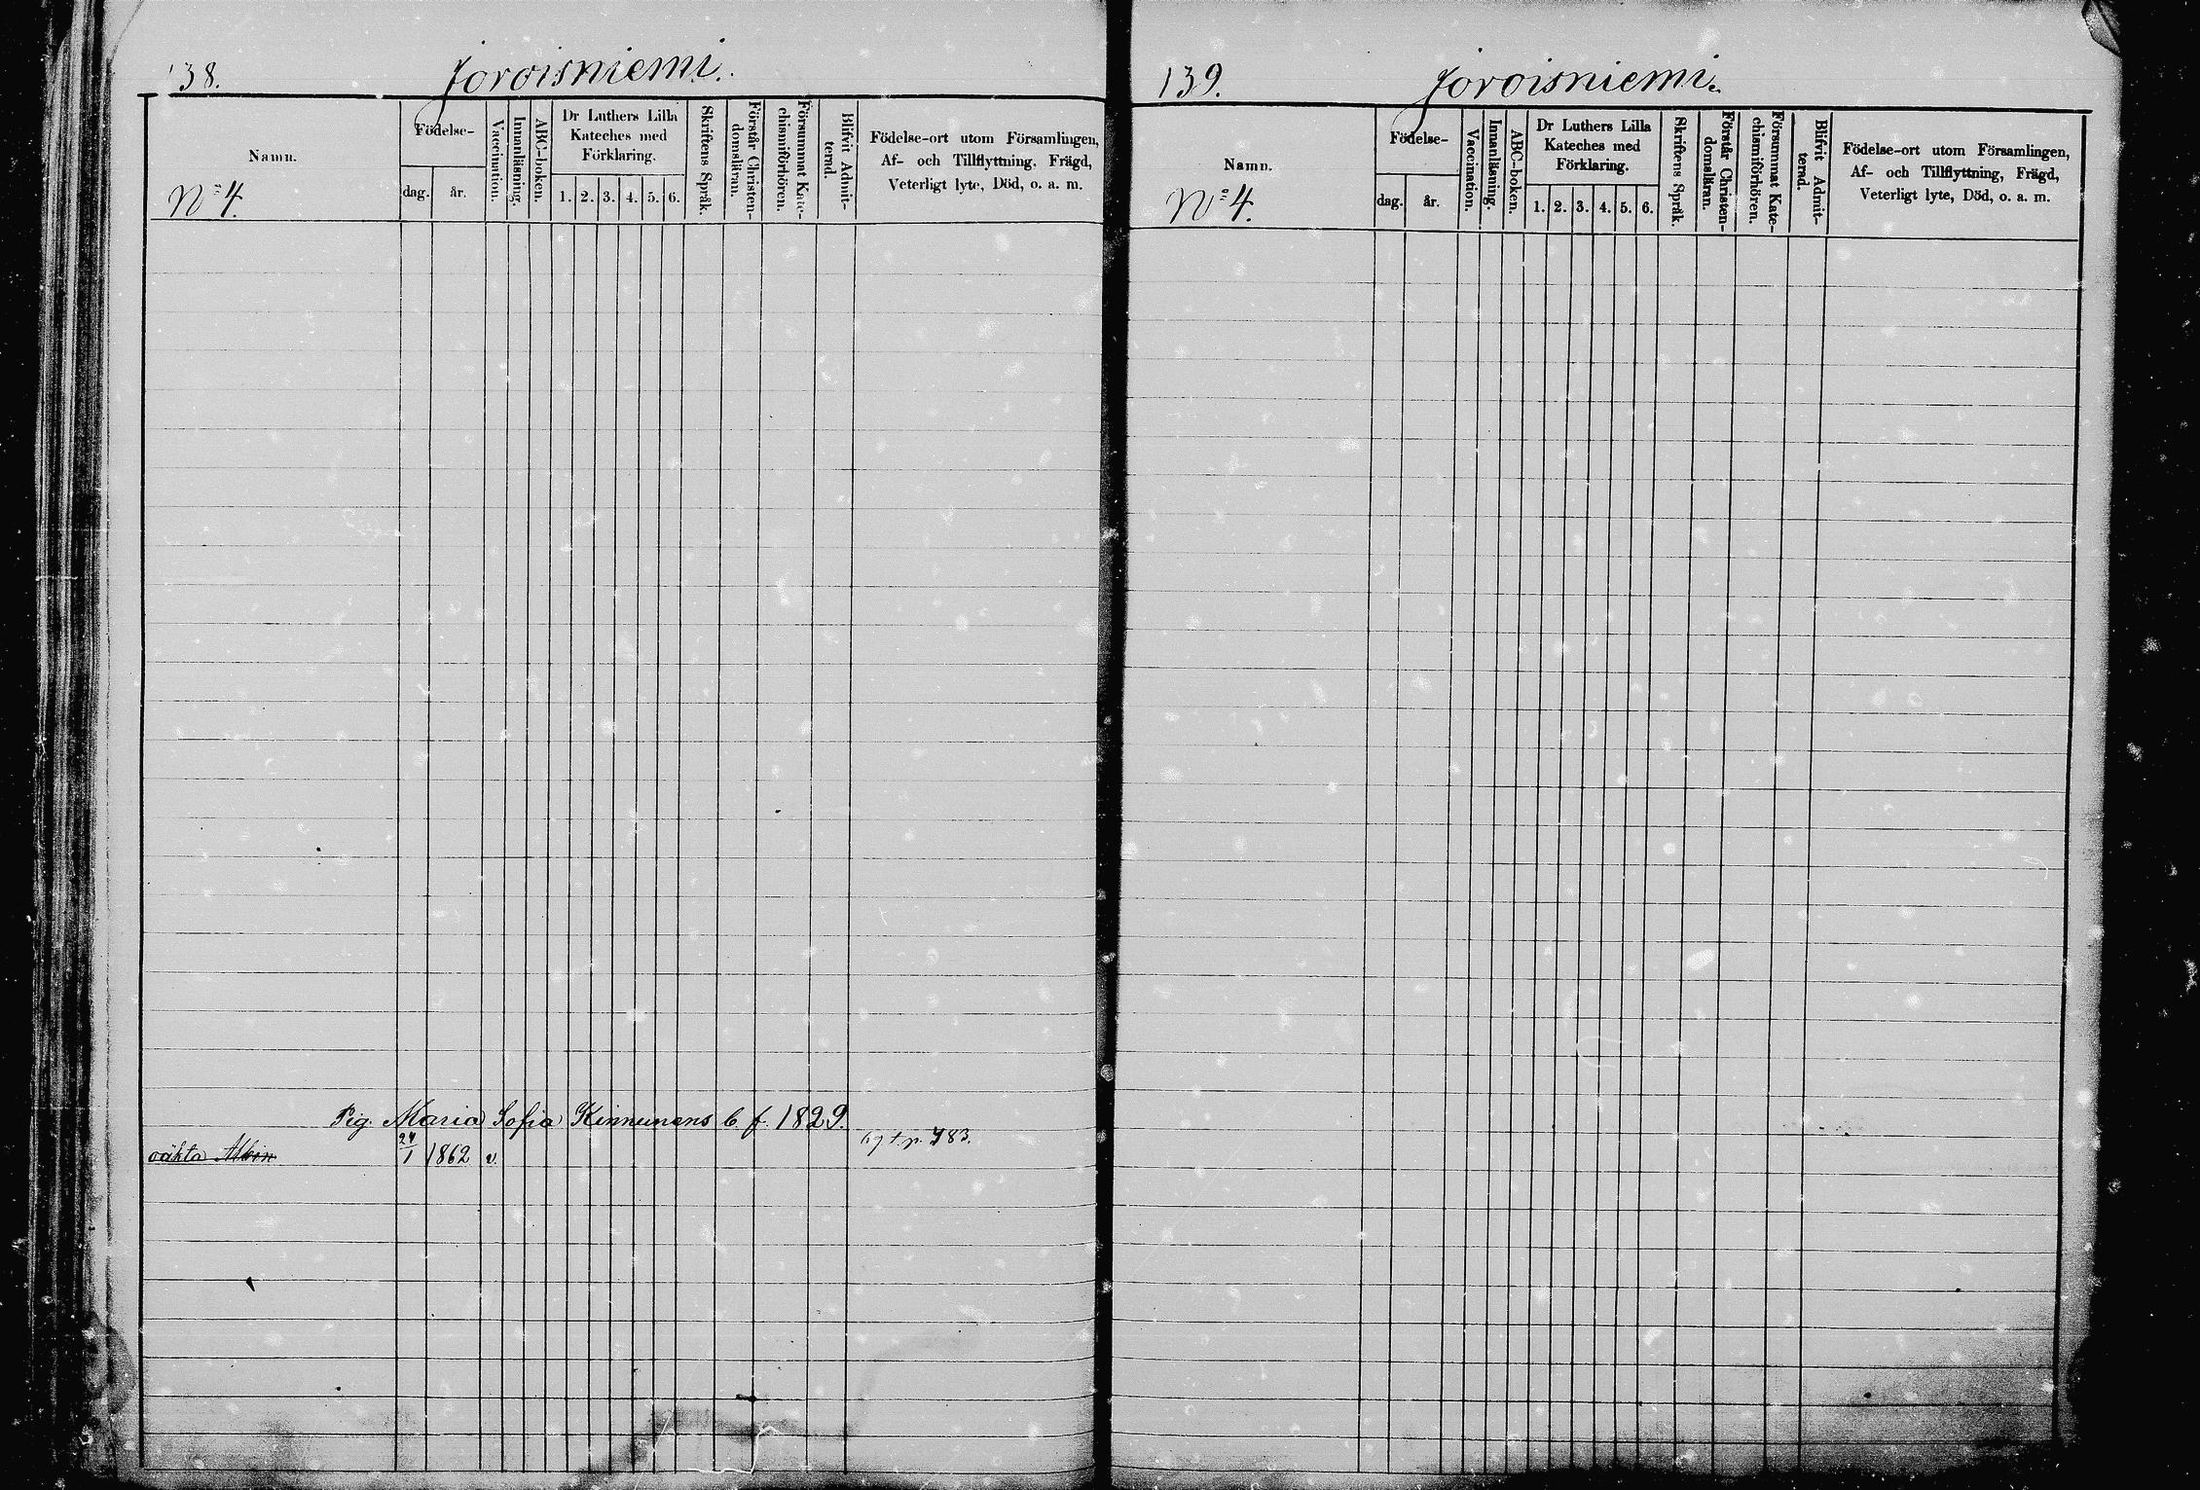 138.
Joroisniemi.
Namn.
Födelse-
dag.
år.
Vaccination.
Innanläsning.
ABC-boken.
Dr Luthers Lilla
Kateches med
Förklaring.
1. 2. 3. 4. 5. 6.
Skriftens Språk.
Förstår Christen-
domsläran.
Försummat Kate-
chismiförhören.
Blifvit Admit-
terad.
Födelse-ort utom Församlingen,
Af- och Tillflyttning. Frägd,
Veterligt lyte, Död, o. a. m.
No 4.
Pig. Maria Sofia Kinnunens b. f. 1829.
oäkta Albin 24/1 1862 v. p. 783.
139.
Joroisniemi.
Namn.
Födelse-
dag.
år.
Vaccination.
Innanläsning.
ABC-boken.
Dr Luthers Lilla
Kateches med
Förklaring.
1. 2. 3. 4. 5. 6.
Skriftens Språk.
Förstår Christen-
domsläran.
Försummat Kate-
chismiförhören.
Blifvit Admit-
terad.
Födelse-ort utom Församlingen,
Af- och Tillflyttning, Frägd,
Veterligt lyte, Död, o. a. m.
No 4.